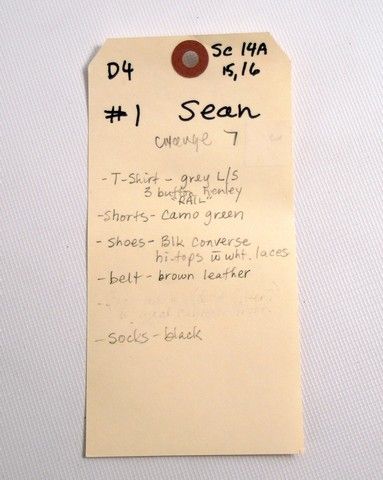 D4
Sc 14A
15, 16
#1 Sean
change 7
- T-Shirt - grey L/S
3 button henley
"RAIL"
- Shorts - Camo green
- Shoes - Blk Converse
hi-tops w wht. laces
- belt - brown leather
-
- Socks - black